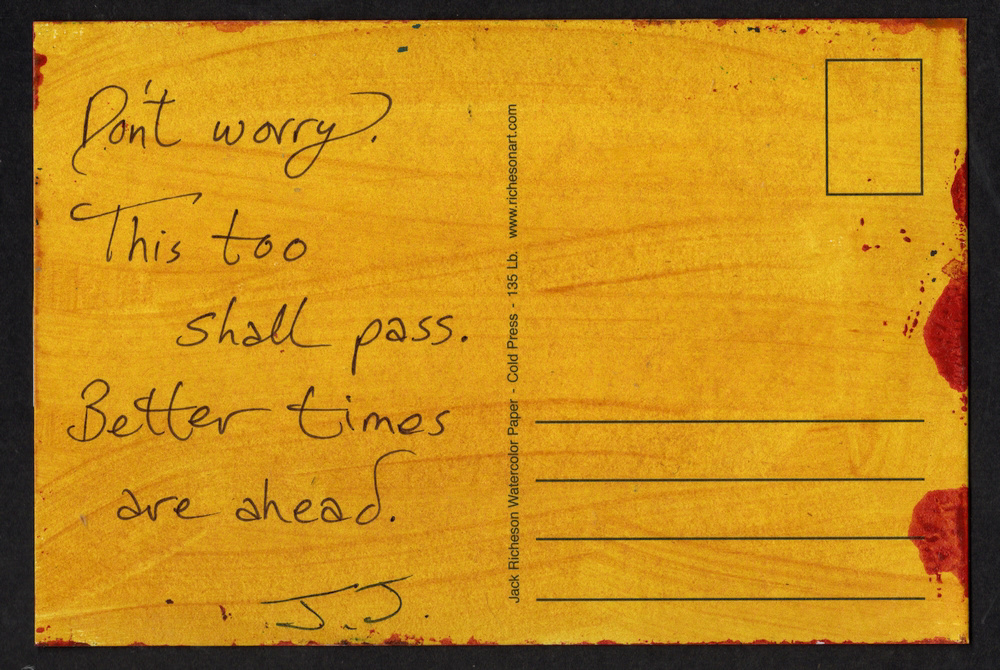 Don't worry.
This too
shall pass.
Better times
are ahead.
J.J.
Jack Richeson Watercolor Paper - Cold Press - 135 Lb. www.richesonart.com